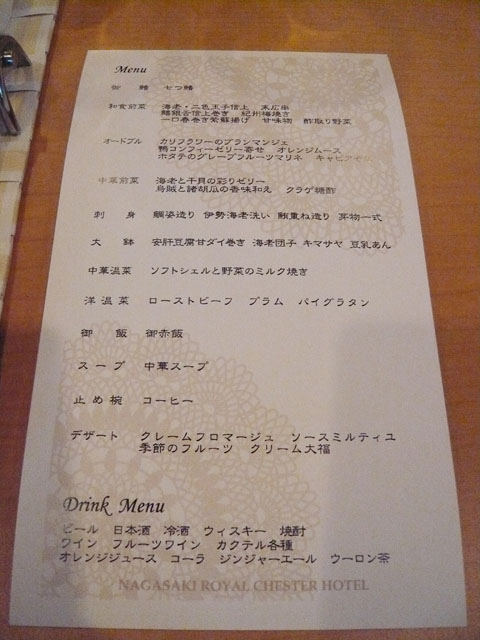 Menu
御 鰭 七つ鰭
和食前菜 海老・二色玉子信上 末広串
鱈銀舌信上巻き 紀州梅焼き
一口春巻き紫蘇揚げ 甘味物 酢取り野菜
オードブル カリフラワーのブランマンジェ
鴨コンフィーゼリー寄せ オレンジムース
ホタテのグレープフルーツマリネ キャビア
中華前菜 海老と干貝の彩りゼリー
烏賊と諸胡瓜の香味和え クラゲ糖酢
刺 身 鯛姿造り 伊勢海老洗い 鮪重ね造り 芽物一式
大 鉢 安肝豆腐甘ダイ巻き 海老団子 キマサヤ 豆乳あん
中華温菜 ソフトシェルと野菜のミルク焼き
洋温菜 ローストビーフ プラム パイグラタン
御 飯 御赤飯
スープ 中華スープ
止め椀 コーヒー
デザート クレームフロマージュ ソースミルティユ
季節のフルーツ クリーム大福
Drink Menu
ビール 日本酒 冷酒 ウィスキー 焼酎
ワイン フルーツワイン カクテル各種
オレンジジュース コーラ ジンジャーエール ウーロン茶
NAGASAKI ROYAL CHESTER HOTEL